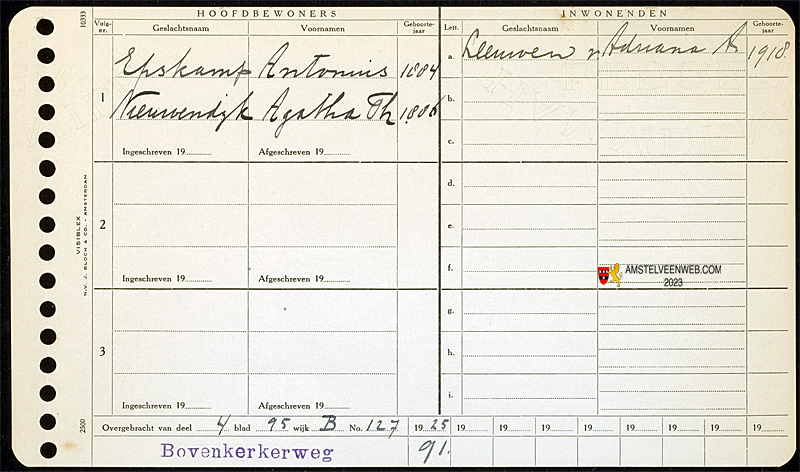 HOOFDBEWONERS
INWONENDEN
Volg-nr. Geslachtsnaam Voornamen Geboorte-jaar
Lett. Geslachtsnaam Voornamen Geboorte-jaar
1
Epskamp Antonius 1884
Nieuwendijk Agatha Th 1886
Ingeschreven 19........ Afgeschreven 19........
2
Ingeschreven 19........ Afgeschreven 19........
3
Ingeschreven 19........ Afgeschreven 19........
a. Leeuwen v Adriana A. 1918
b.
c.
d.
e.
f.
g.
h.
i.
AMSTELVEENWEB.COM
2023
Overgebracht van deel 4 blad 95 wijk B No. 127 1925 19 19 19 19 19 19 19 19
Bovenkerkerweg 91.
10333
VISIBLEX
N.V. J. BLOCH & CO. - AMSTERDAM
2500